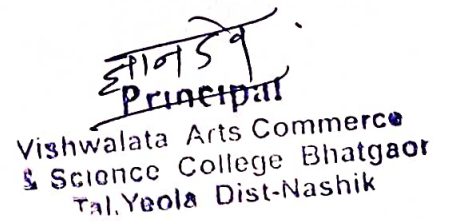 ज्ञानदेव
Principal
Vishwalata Arts Commerce
& Science College Bhatgaon
Tal. Yeola Dist-Nashik